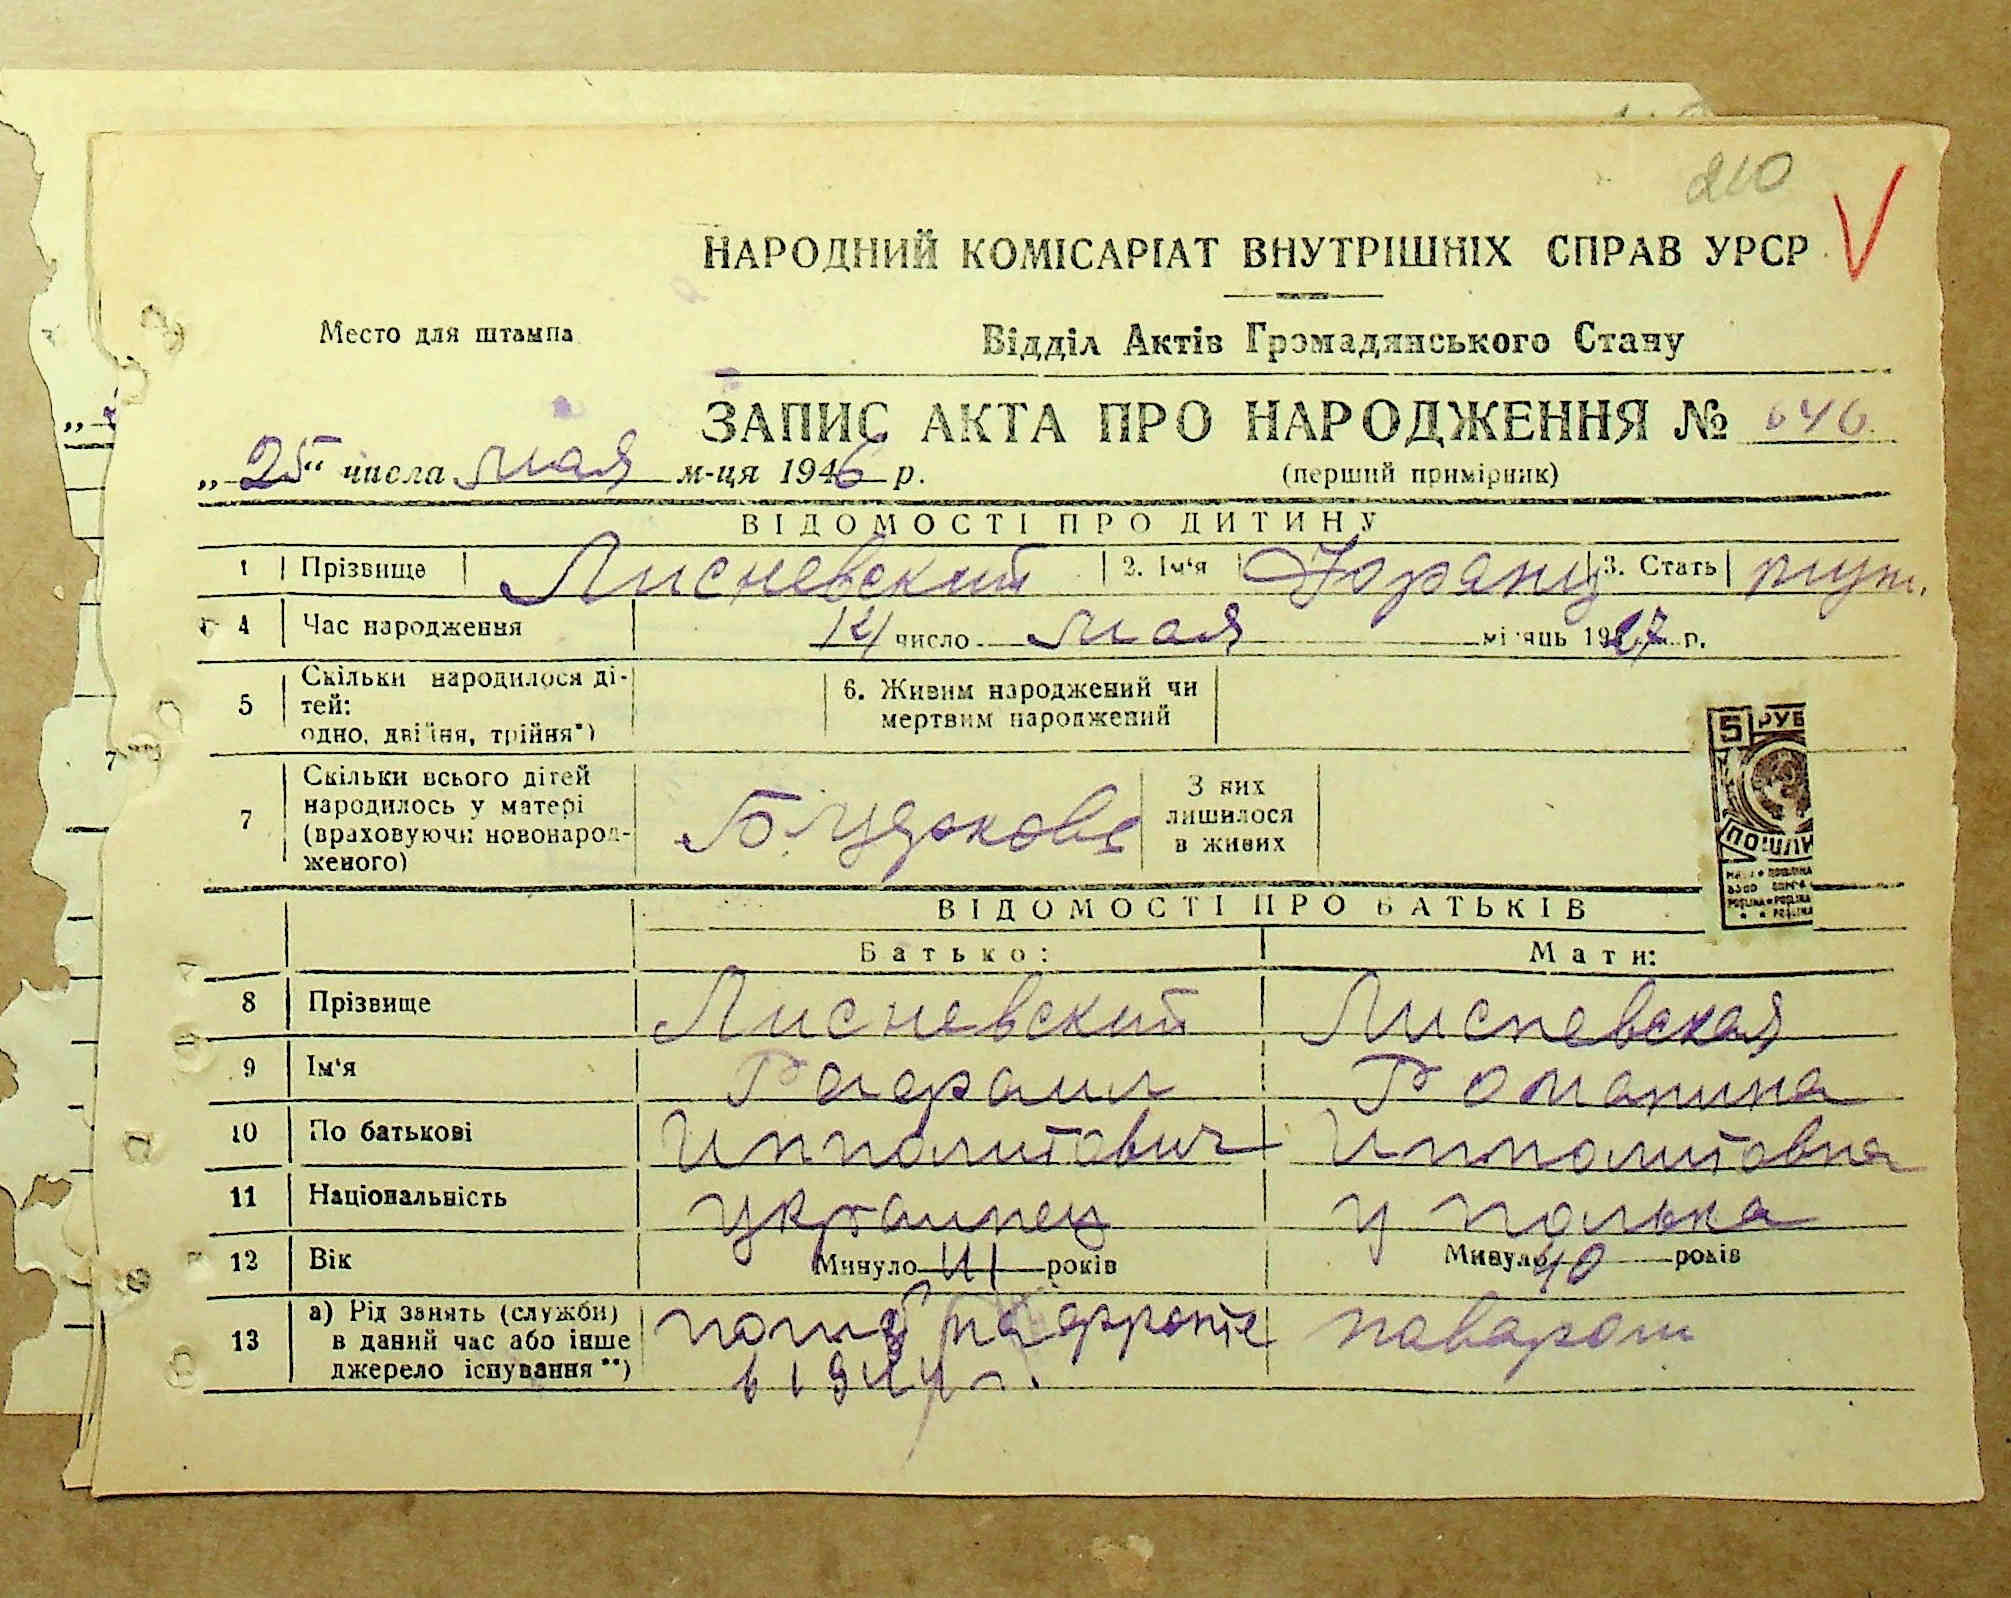 210
НАРОДНИЙ КОМІСАРІАТ ВНУТРІШНІХ СПРАВ УРСР
Место для штампа
Відділ Актів Громадянського Стану
ЗАПИС АКТА ПРО НАРОДЖЕННЯ № 646
„25“ числа мая м-ця 1946 р.
(перший примірник)
ВІДОМОСТІ ПРО ДИТИНУ
1 Прізвище Лисневский 2. Ім'я 3. Стать муж.
4 Час народження 14 число мая місяць 1927 р.
5 Скільки народилося ді-
тей:
одно, двійня, трійня*)
6. Живим народжений чи
мертвим народжений
7 Скільки всього дітей
народилось у матері
(враховуючи новонарод-
женого)
З них
лишилося
в живих
5 РУБ
ПОШЛИ
ВІДОМОСТІ ПРО БАТЬКІВ
Батько: Мати:
8 Прізвище Лисневский Лисневская
9 Ім'я Рафаил Романина
10 По батькові Ипполитович Ипполитовна
11 Національність украинец у полька
12 Вік Минуло 41 років Минуло 40 років
13 а) Рід занять (служби)
в даний час або інше
джерело існування**)
погиб на фронте
в 1944 г.
поваром